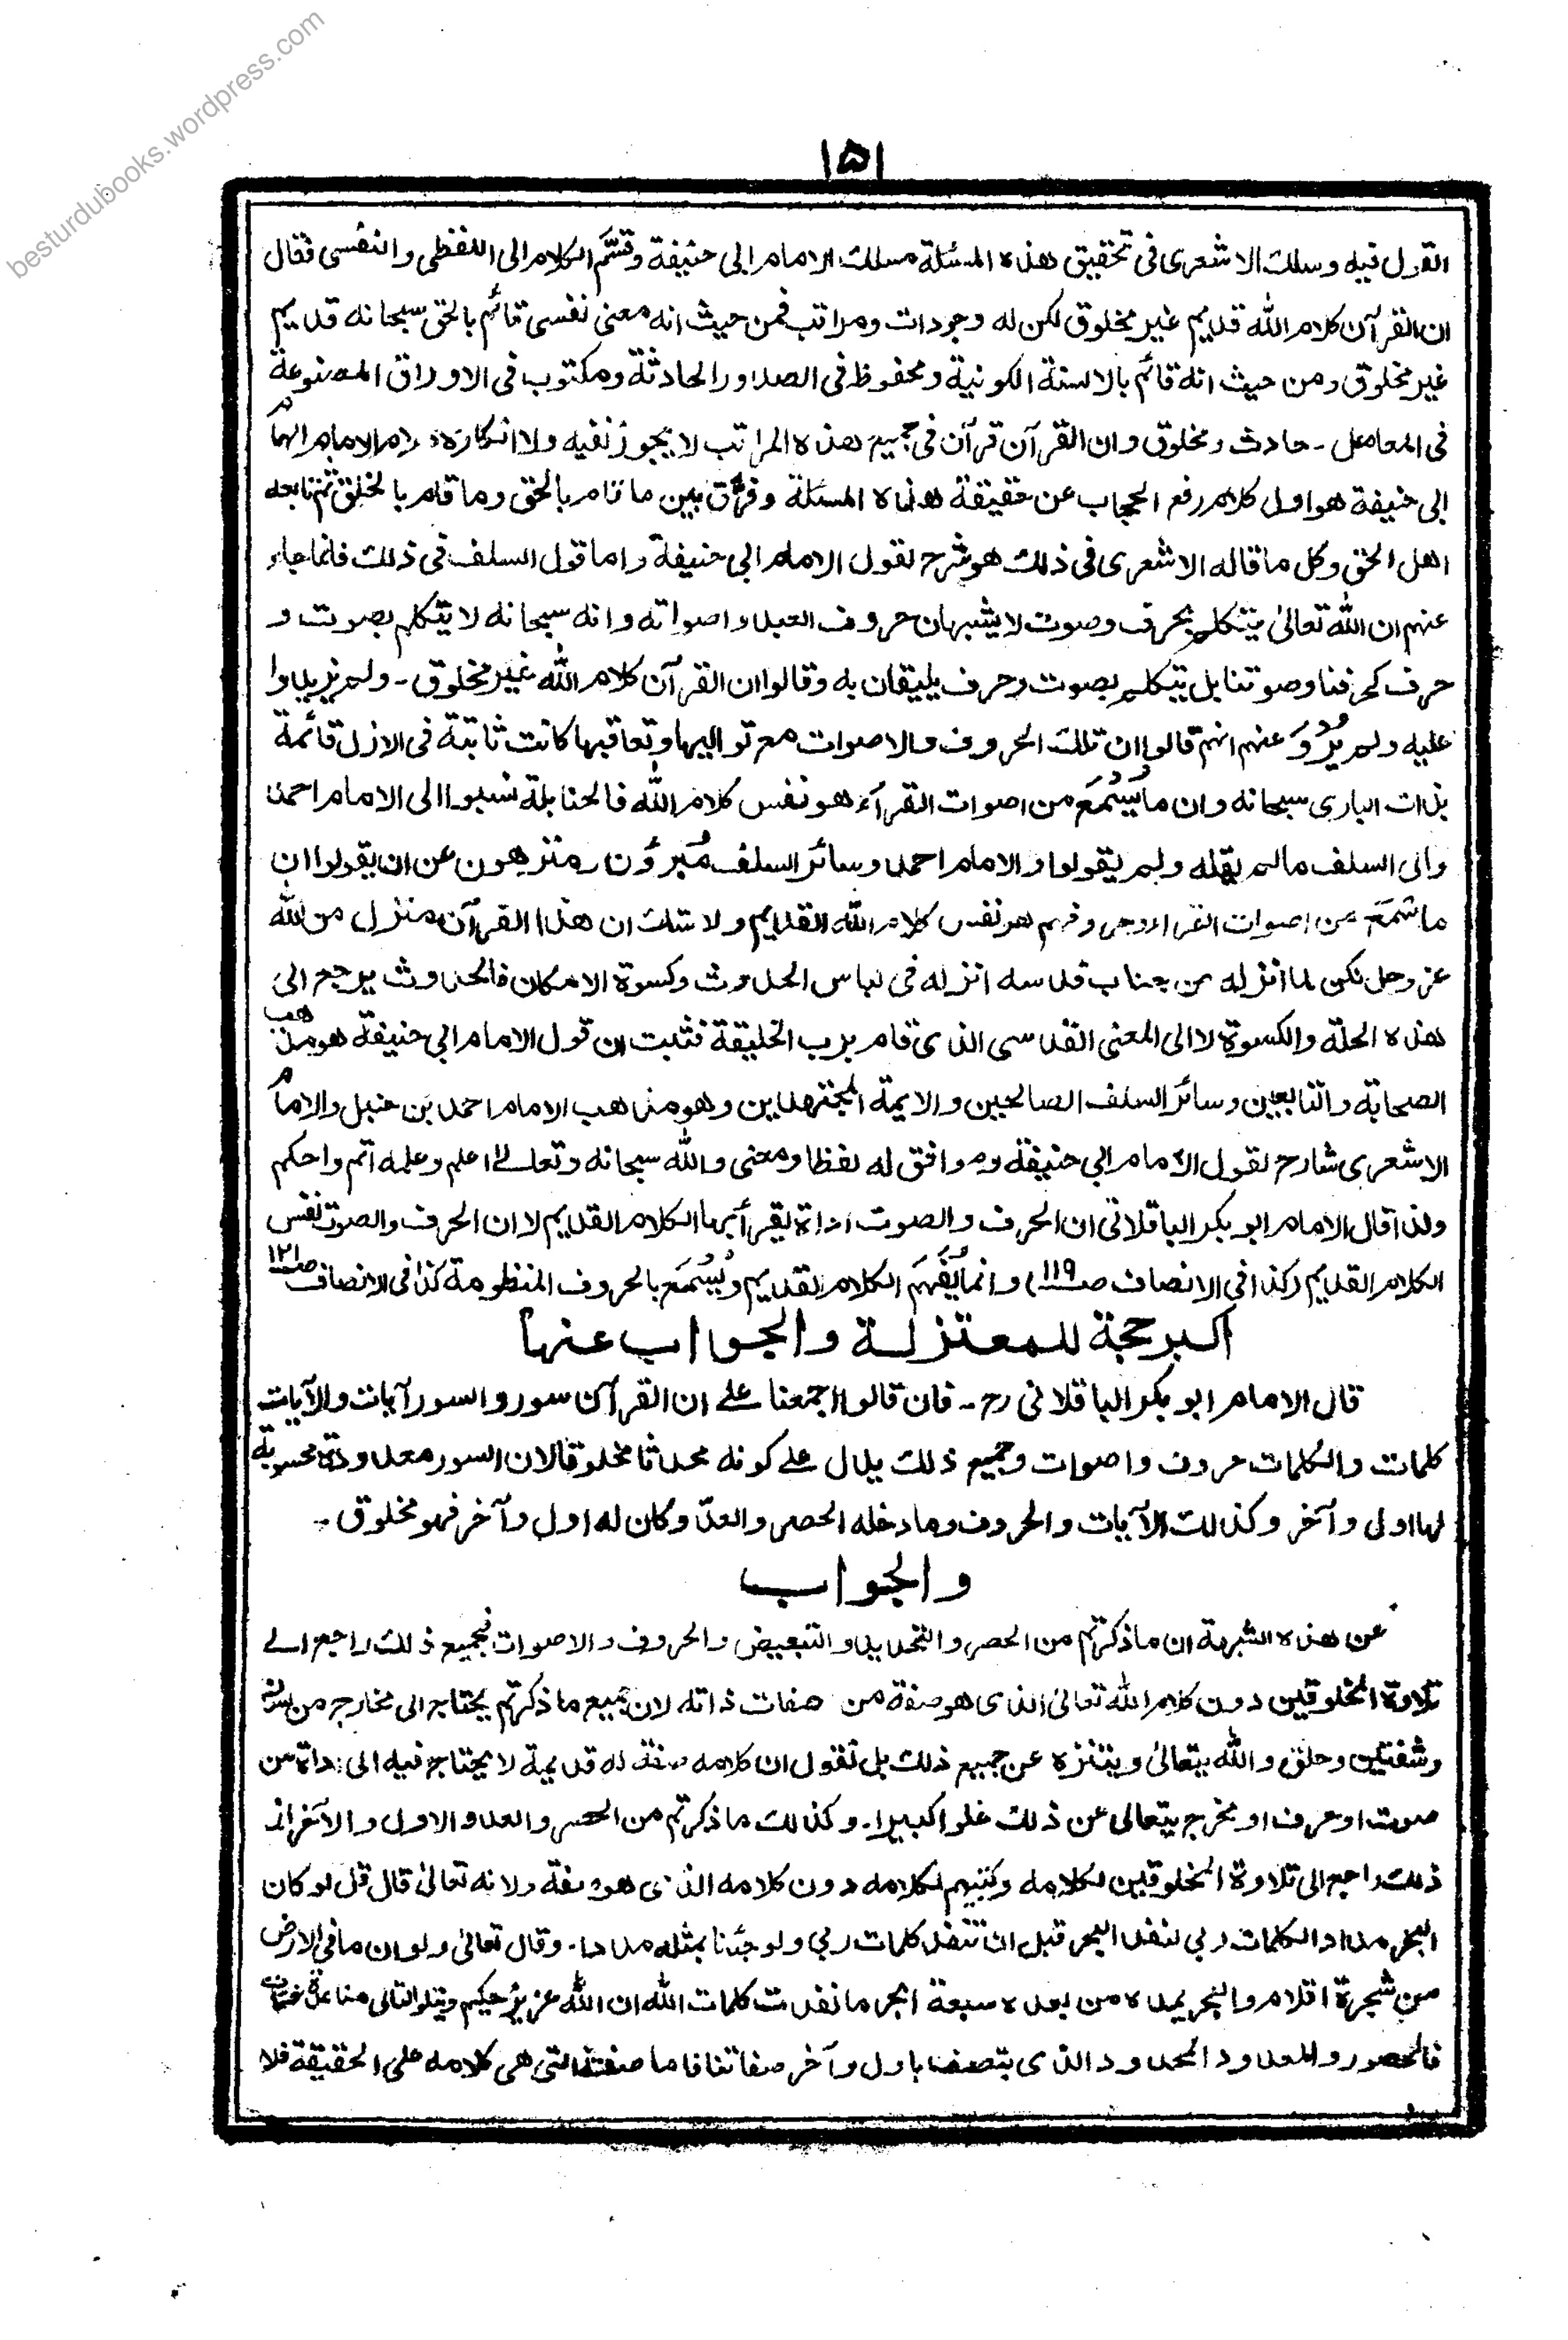 besturdubooks.wordpress.com
١٥١
القول فيه وسلك الاشعرى فى تحقيق هذه المسئلة مسلك الامام ابى حنيفة وقسَّم الكلام الى اللفظى والنفسى فقال
ان القرآن كلام الله قديم غير مخلوق لكن له وجودات ومراتب فمن حيث انه معنى نفسى قائم بالحق سبحانه قديم
غير مخلوق ومن حيث انه قائم بالالسنة الكونية ومحفوظ فى الصدور الحادثة ومكتوب فى الاوراق المصنوعة
فى المعامل ـ حادث ومخلوق وان القرآن قرآن فى جميع هذه المراتب لا يجوز نفيه ولا انكاره، الامام الهمام
ابى حنيفة هو اول كلام رفع الحجاب عن حقيقة هذه المسئلة وفرَّق بين ما قام بالحق وما قام بالخلق ثم تابعه
اهل الحق وكل ما قاله الاشعرى فى ذلك هو شرح لقول الامام ابى حنيفة واما قول السلف فى ذلك فانما جاء
عنهم ان الله تعالىٰ يتكلم بحرف وصوت لا يشبهان حروف العبد واصواته وانه سبحانه لا يتكلم بصوت و
حرف كحرفنا وصوتنا بل يتكلم بصوت وحرف يليقان به وقالوا ان القرآن كلام الله غير مخلوق ـ ولم يزيدوا
عليه ولم يُرْوَ عنهم انهم قالوا ان تلك الحروف والاصوات مع تواليها وتعاقبها كانت ثابتة فى الازل قائمة
بذات البارى سبحانه وان ما يُسْمَع من اصوات القرآء هو نفس كلام الله فالحنابلة نسبوا الى الامام احمد
والى السلف ما لم يقله ولم يقولوا والامام احمد وسائر السلف مُبرؤن ومنزهون عن ان يقولوا ان
ما سُمع من اصوات القراء هو نفس كلام الله القديم ولا شك ان هذا القرآن منزل من الله
عز وجل لكن لما انزله من جناب قدسه انزله فى لباس الحدوث وكسوة الامكان فالحدوث يرجع الى
هذه الحلة والكسوة لا الى المعنى القدسى الذى قام برب الخليقة فثبت ان قول الامام ابى حنيفة هو مذهب
الصحابة والتابعين وسائر السلف الصالحين والايمة المجتهدين وهو مذهب الامام احمد بن حنبل والامام
الاشعرى شارح لقول الامام ابى حنيفة وموافق له لفظا ومعنى والله سبحانه وتعالےٰ اعلم وعلمه اتم واحكم
ولذا قال الامام ابو بكر الباقلانى ان الحرف والصوت اداة يقرأ بها الكلام القديم لا ان الحرف والصوت نفس
الكلام القديم (كذا فى الانصاف صـ١١٩) وانما يُفْهَم الكلام القديم ويُسْمَع بالحروف المنظومة كذا فى الانصاف صـ١٢١
اكبر حجة للمعتزلة والجواب عنها
قال الامام ابو بكر الباقلانى رح ـ فان قالوا اجمعنا علے ان القرآن سور والسور آيات والآيات
كلمات والكلمات حروف واصوات وجميع ذلك يدل علے كونه محدثا مخلوقا لان السور معدودة محسوبة
لها اول وآخر وكذلك الآيات والحروف وما دخله الحصر والعدّ وكان له اول وآخر فهو مخلوق ـ
والجواب
عن هذه الشبهة ان ما ذكرتم من الحصر والتحديد والتبعيض والحروف والاصوات فجميع ذلك راجع الے
تلاوة المخلوقين دون كلام الله تعالىٰ الذى هو صفة من صفات ذاته لان جميع ما ذكرتم يحتاج الى مخارج من لسان
وشفتين وحلق والله يتعالىٰ ويتنزه عن جميع ذلك بل نقول ان كلامه صفة له قديمة لا يحتاج فيه الى اداة من
صوت او حرف او مخرج يتعالى عن ذلك علوا كبيرا ـ وكذلك ما ذكرتم من الحصر والعد والاول والآخر انما
ذلك راجع الى تلاوة المخلوقين لكلامه وكتبهم لكلامه دون كلامه الذى هو صفة ولانه تعالىٰ قال قل لو كان
البحر مدادا لكلمات ربى لنفد البحر قبل ان تنفد كلمات ربى ولو جئنا بمثله مددا ـ وقال تعالىٰ ولو ان ما فى الارض
من شجرة اقلام والبحر يمده من بعده سبعة ابحر ما نفدت كلمات الله ان الله عزيز حكيم ويتلو التالى منا
فالمحصور والمعدود المحدود الذى يتصف باول وآخر صفاتنا فاما صفته التى هى كلامه على الحقيقة فلا